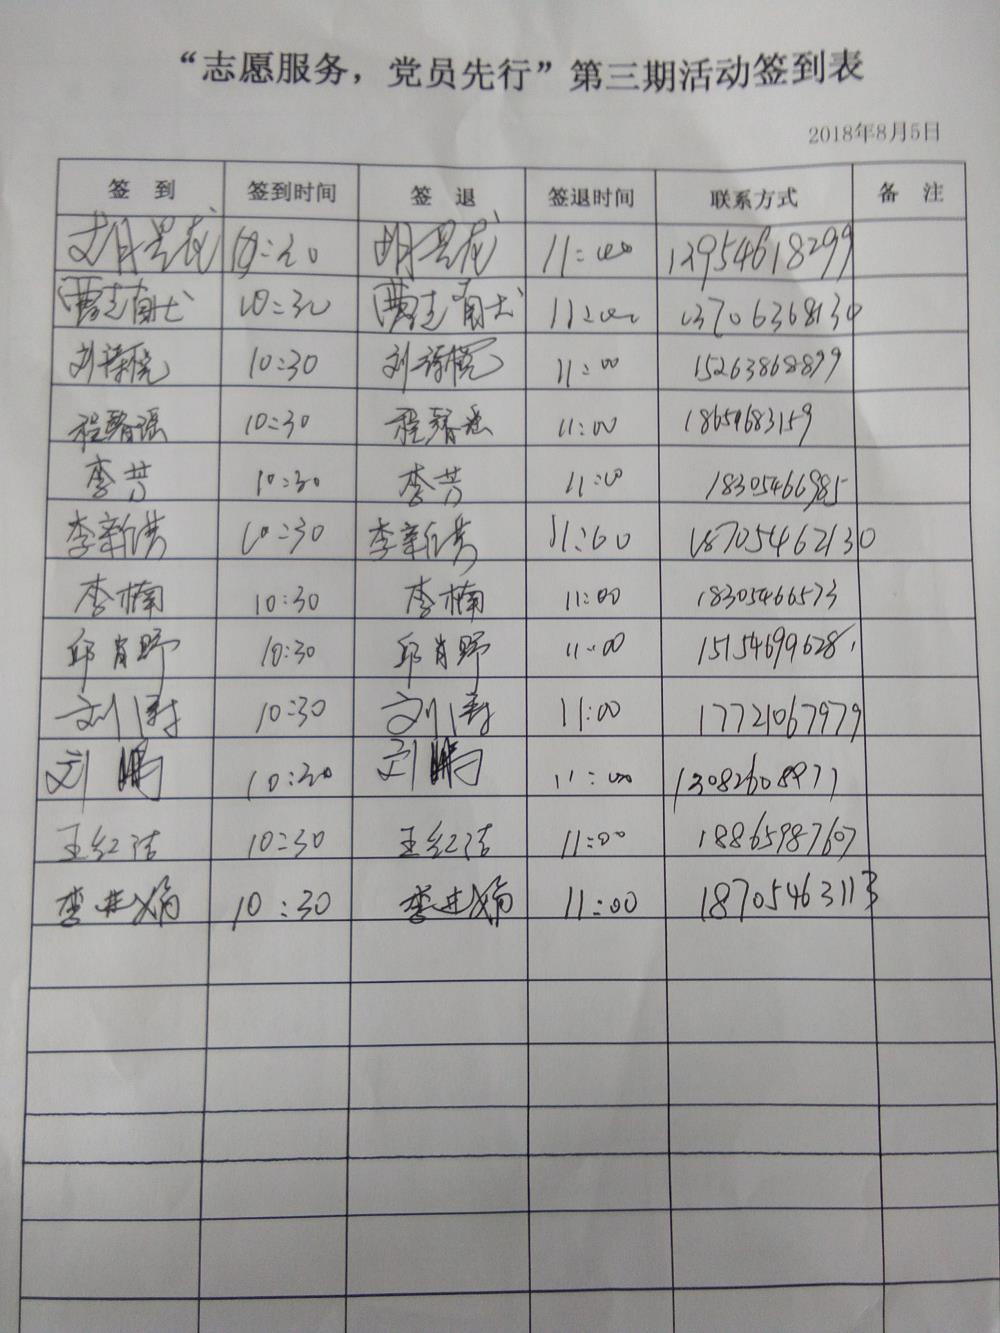 “志愿服务，党员先行”第三期活动签到表
2018年8月5日
签 到 签到时间 签 退 签退时间 联系方式 备 注
11:00
10:30 11:00 13706368130
10:30 11:00 15263868899
10:30 11:00 18654683159
李芳 10:30 李芳 11:00 18305466985
10:30 18705462130
李楠 10:30 李楠 11:00 18305466573
邱肖野 10:30 邱肖野 11:00 15154699628
刘涛 10:30 刘涛 11:00 17721067979
刘鹏 10:30 刘鹏 11:00 13082608971
王红洁 10:30 王红洁 11:00 18865987607
10:30 11:00 18705463113